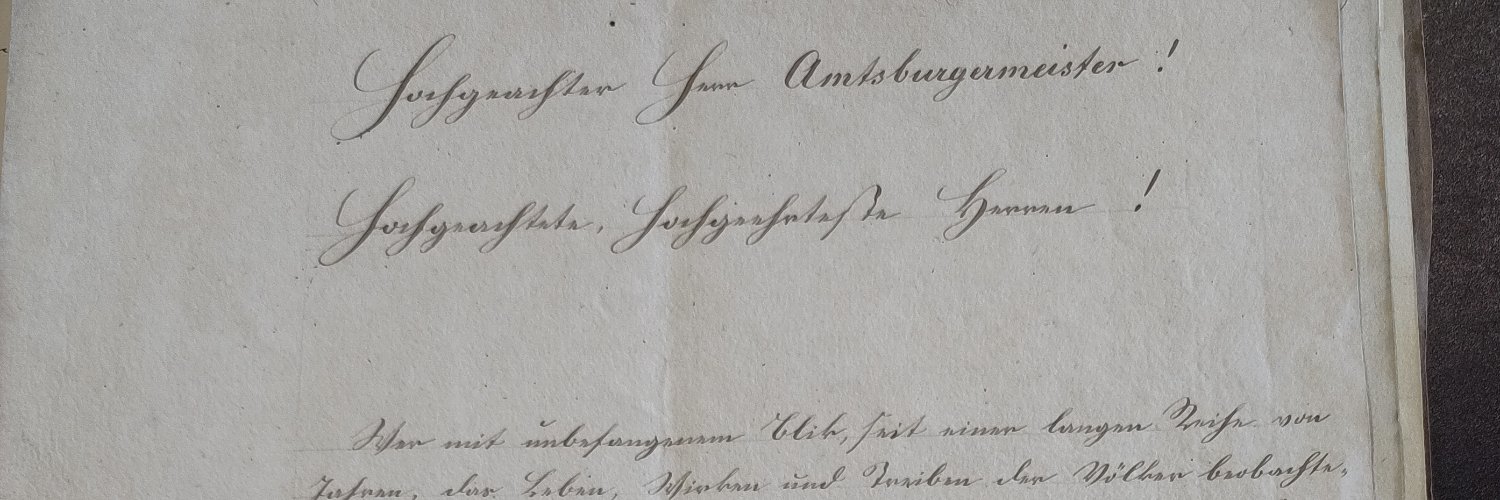 Hochgeachter Herr Amtsburgermeister !
Hochgeachtete, Hochgeehrteste Herren !
Wer mit unbefangenem Blik, seit einer langen Reihe von
Jahren, das Leben, Wirken und Treiben der Völker beobachte-